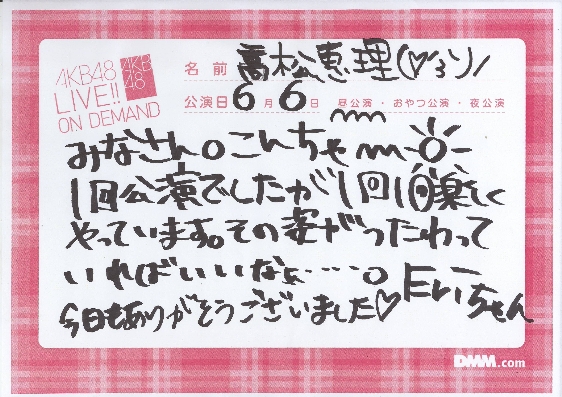 AKB48
LIVE!!
ON DEMAND
AKB
48
名前 高松恵理(♡3ソ)ノ
公演日 6月6日 昼公演・おやつ公演・夜公演
みなさん。こんちゃ
1回公演でしたが1回1回楽しく
やっています。その姿がつたわって
いればいいなぁ……。
えりーちゃん
今日もありがとうございました♡
DMM.com